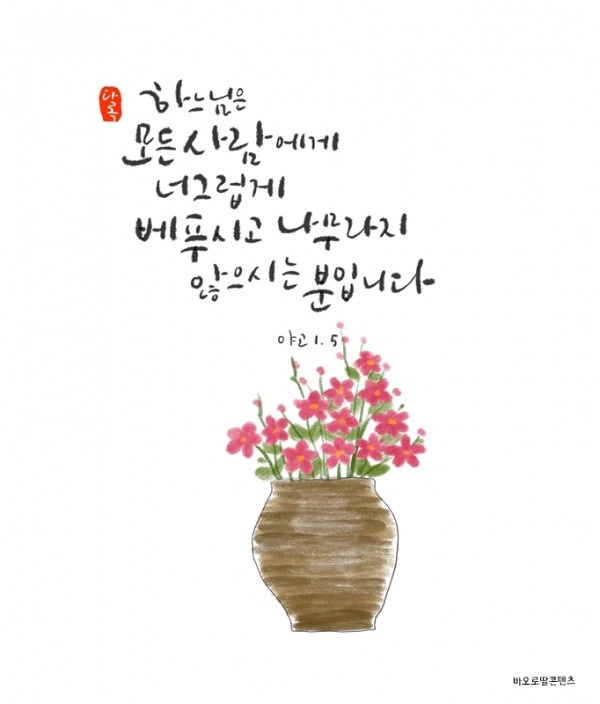 다록
하느님은
모든 사람에게
너그럽게
베푸시고 나무라지
않으시는 분입니다
야고 1. 5
바오로딸콘텐츠